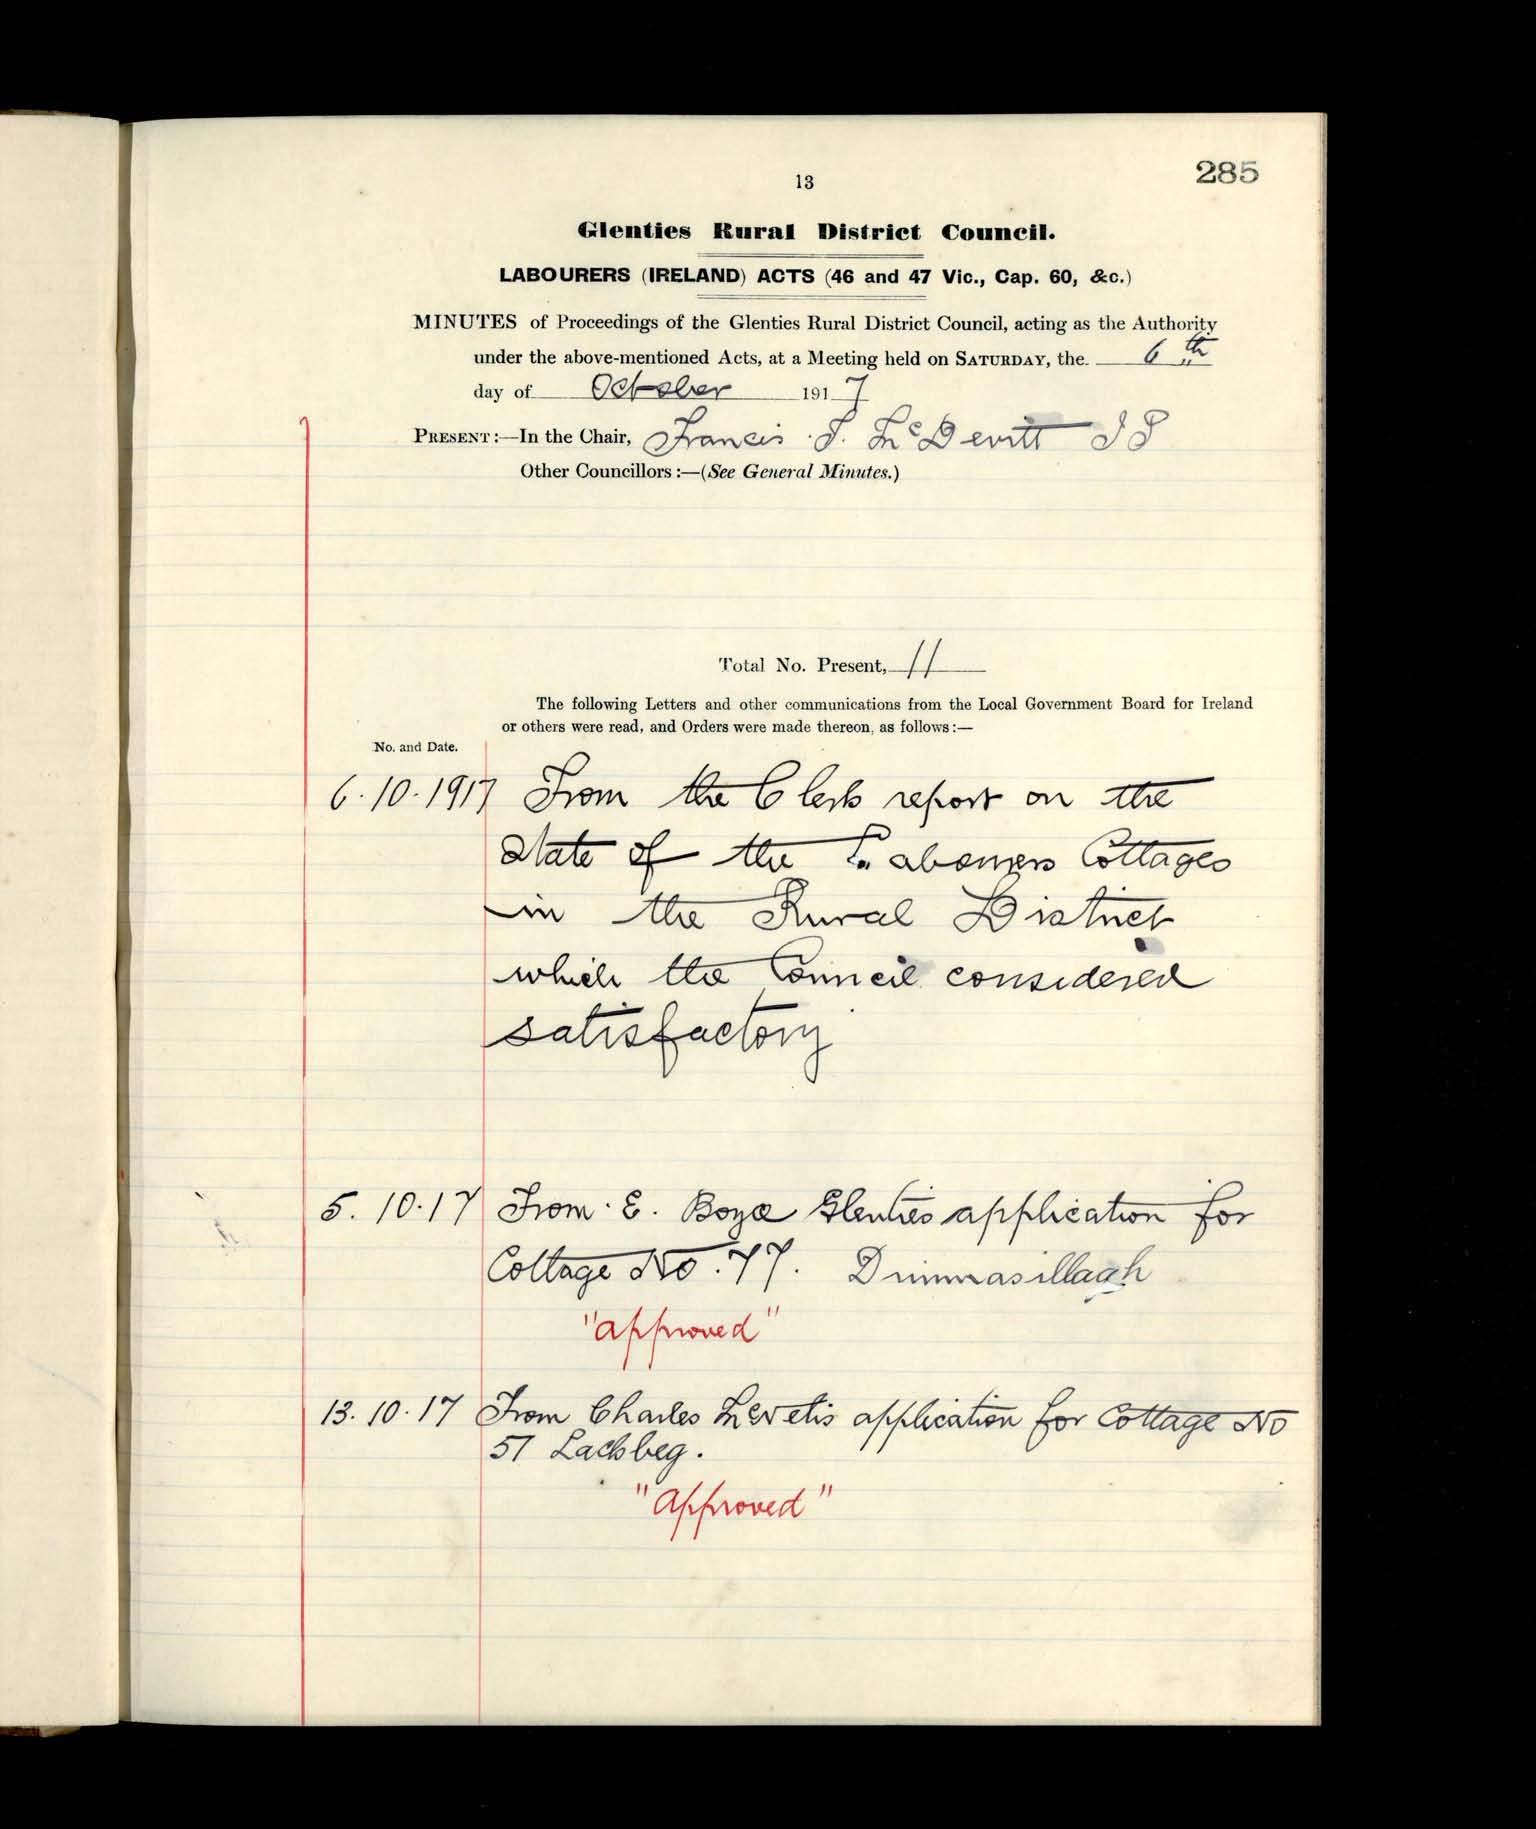 285
13
Glenties Rural District Council.
LABOURERS (IRELAND) ACTS (46 and 47 Vic., Cap. 60, &c.)
MINUTES of Proceedings of the Glenties Rural District Council, acting as the Authority
under the above-mentioned Acts, at a Meeting held on SATURDAY, the 6th
day of October 1917
PRESENT:—In the Chair, Francis J. McDevitt J P
Other Councillors:—(See General Minutes.)
Total No. Present, 11
The following Letters and other communications from the Local Government Board for Ireland
or others were read, and Orders were made thereon, as follows:—
No. and Date.
6.10.1917 From the Clerk report on the
state of the Labourers Cottages
in the Rural District
which the Council considered
satisfactory
5.10.17 From E. Boyce Glenties application for
Cottage No. 77. Drimnasillagh
"approved"
13.10.17 From Charles application for Cottage No
51 Lackbeg.
"Approved"